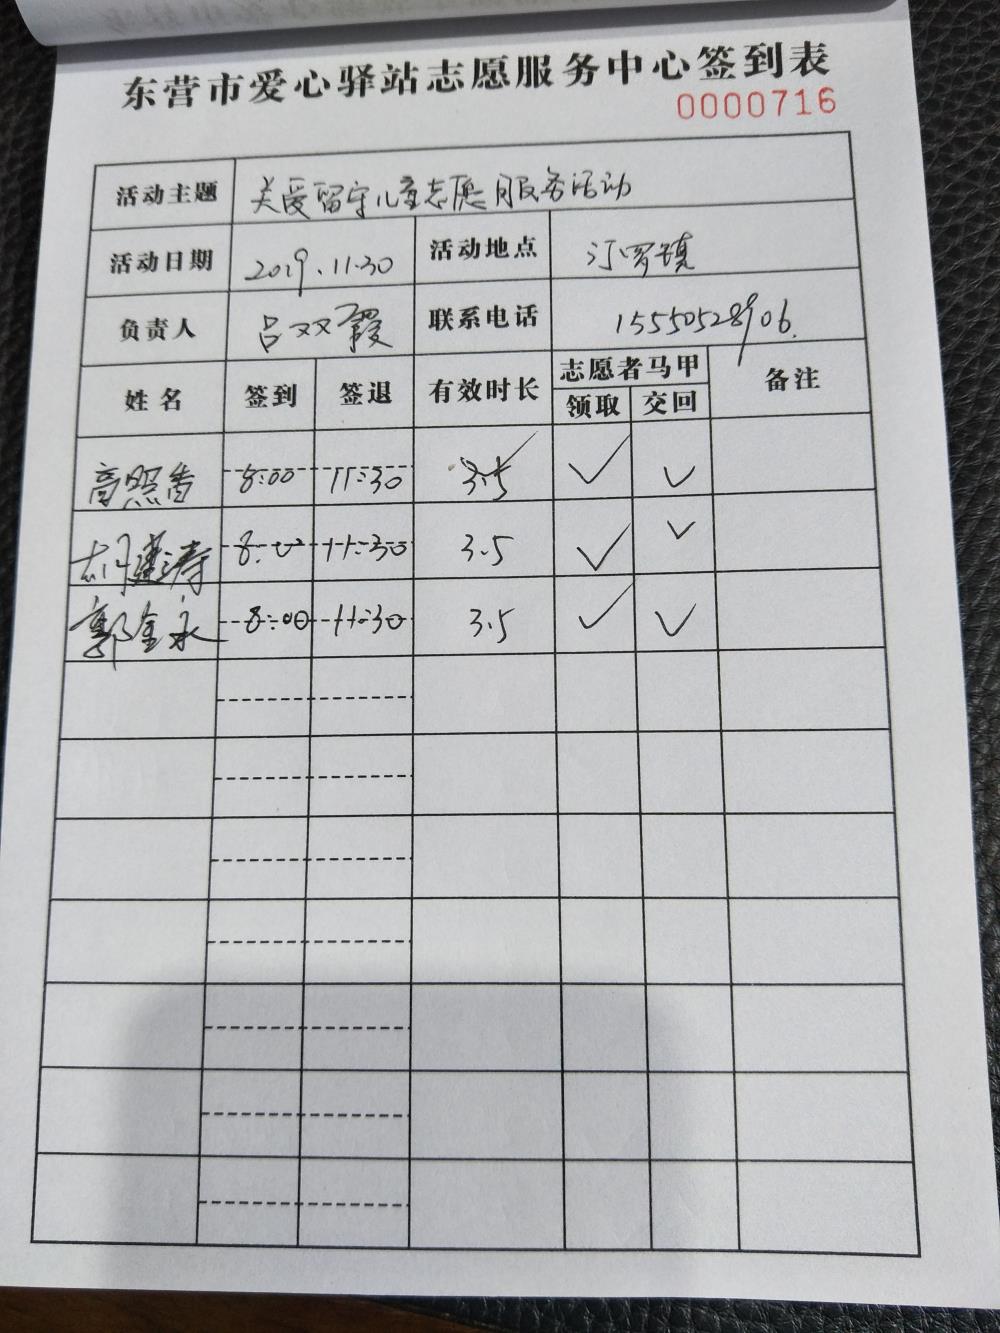 东营市爱心驿站志愿服务中心签到表
0000716
活动主题 关爱留守儿童志愿服务活动
活动日期 2019.11.30 活动地点 汀罗镇
负责人 吕双霞 联系电话 15550528906.
姓名 签到 签退 有效时长 志愿者马甲 备注
领取 交回
高照香 8:00 11:30 3.5 ✓ ✓
胡建涛 8:00 11:30 3.5 ✓ ✓
郭金永 8:00 11:30 3.5 ✓ ✓